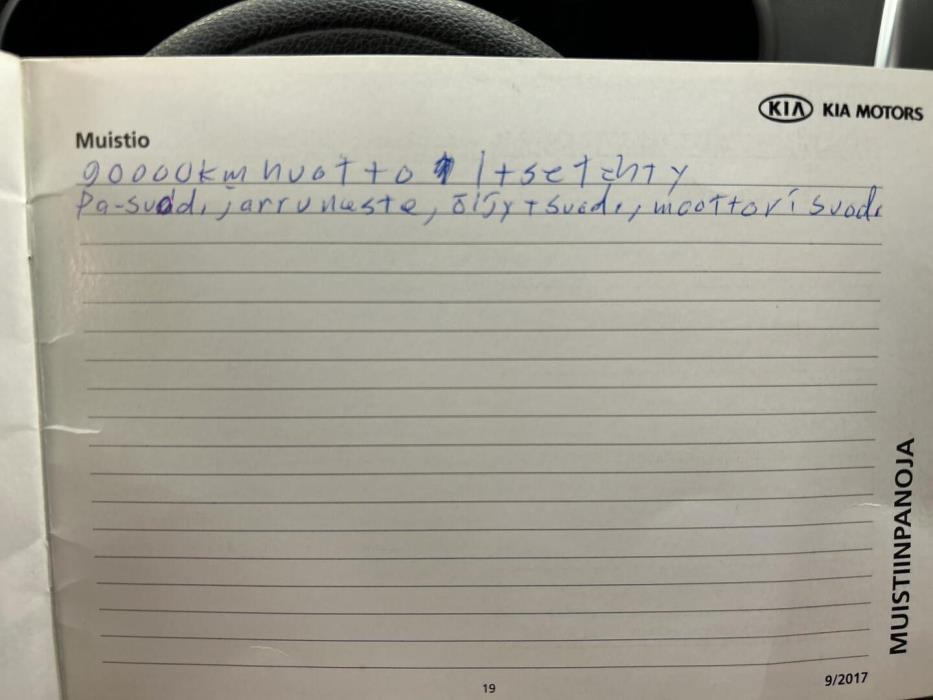 KIA KIA MOTORS
Muistio
90000km huolto itse tehty
Pa-suod., jarruneste, öljy+suod., moottori suod.
MUISTIINPANOJA
19
9/2017